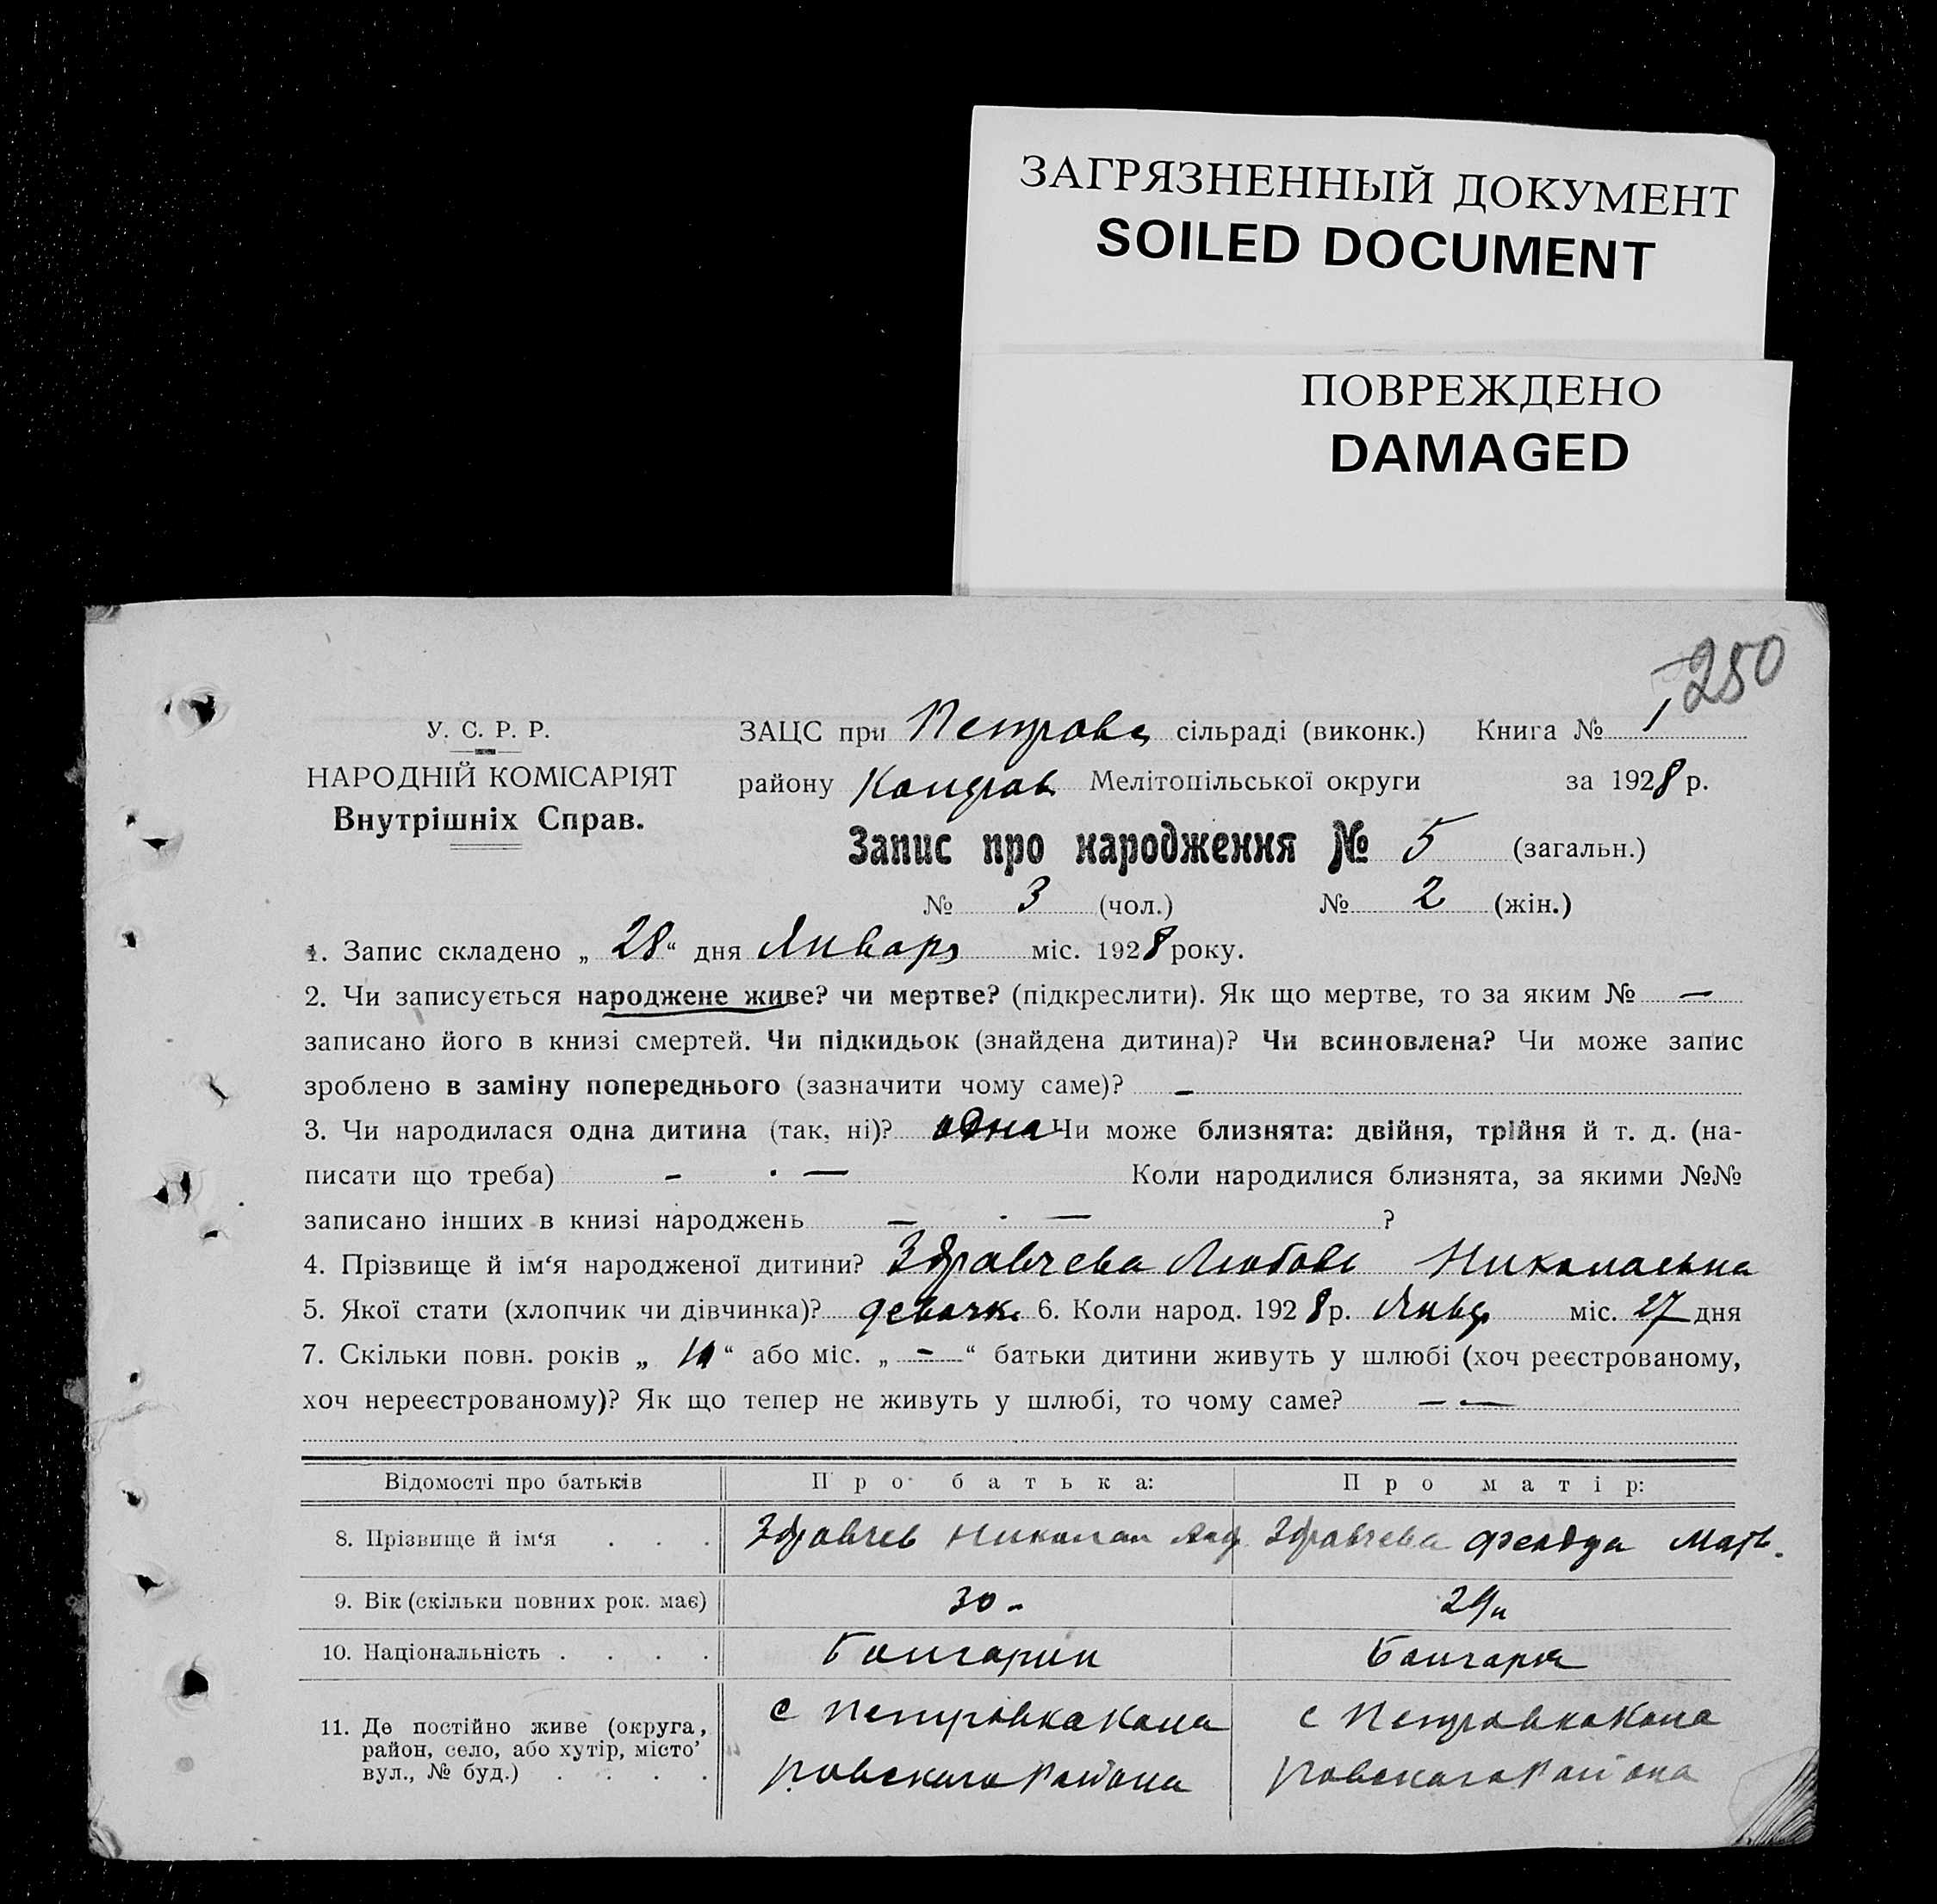 ЗАГРЯЗНЕННЫЙ ДОКУМЕНТ
SOILED DOCUMENT
ПОВРЕЖДЕНО
DAMAGED
250
У. С. Р. Р.
НАРОДНІЙ КОМІСАРІЯТ
Внутрішніх Справ.
ЗАЦС при Петровс сільраді (виконк.) Книга № 1
району Мелітопільської округи за 1928 р.
Запис про народження № 5 (загальн.)
№ 3 (чол.) № 2 (жін.)
1. Запис складено „ 28 “ дня Января міс. 1928 року.
2. Чи записується народжене живе? чи мертве? (підкреслити). Як що мертве, то за яким № —
записано його в книзі смертей. Чи підкидьок (знайдена дитина)? Чи всиновлена? Чи може запис
зроблено в заміну попереднього (зазначити чому саме)? —
3. Чи народилася одна дитина (так, ні)? одна Чи може близнята: двійня, трійня й т. д. (на-
писати що треба) - · — Коли народилися близнята, за якими №№
записано інших в книзі народжень — · — ?
4. Прізвище й ім‘я народженої дитини? Здравчева Любовь Николаевна
5. Якої стати (хлопчик чи дівчинка)? девочк. 6. Коли народ. 1928 р. Янвр міс. 27 дня
7. Скільки повн. років „ “ або міс. „ - “ батьки дитини живуть у шлюбі (хоч реєстрованому,
хоч нереєстрованому)? Як що тепер не живуть у шлюбі, то чому саме? — —
Відомості про батьків Про батька: Про матір:
8. Прізвище й ім‘я . . . Здравчев Николай Здравчева Матв.
9. Вік (скільки повних рок. має) 30 - 29
10. Національність . . . . Болгарин Болгарка
11. Де постійно живе (округа, район, село, або хутір, місто’ вул., № буд.) . . . .
с Петровка Кола
ровского Района
с Петровка Кола
ровского Района